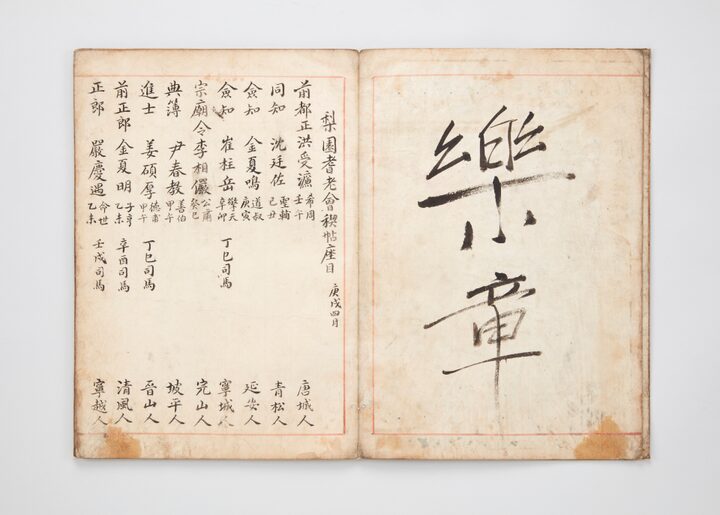 樂章
梨園耆老會稧帖座目 庚戌四月
前都正洪受濂 希周 壬午 唐城人
同知 沈廷佐 己丑 青松人
僉知 金夏鳴 道叔 庚寅 延安人
僉知 崔柱岳 擎天 辛卯 丁巳司馬 寧城人
宗廟令李相儼 公肅 癸巳 完山人
典簿 尹春教 善伯 甲午 坡平人
進士 姜碩厚 德甫 甲午 丁巳司馬 晉山人
前正郎 金夏明 乙未 辛酉司馬 清風人
正郎 嚴慶遇 命世 乙未 壬戌司馬 寧越人